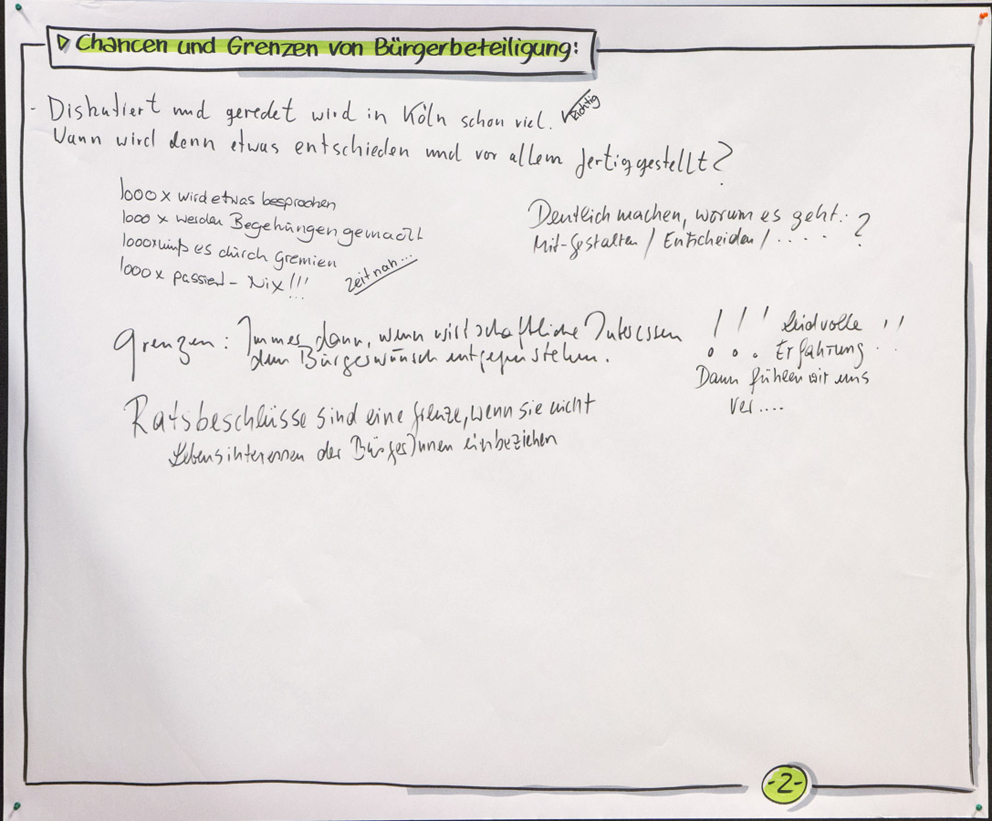 ▷ Chancen und Grenzen von Bürgerbeteiligung:
- Diskutiert und geredet wird in Köln schon viel. Richtig
Wann wird denn etwas entschieden und vor allem fertiggestellt?
1000 x wird etwas besprochen
1000 x werden Begehungen gemacht
1000x muß es durch gremien
1000 x passiert - Nix!!!
Zeitnah...
Deutlich machen, worum es geht..?
Mit-gestalten / Entscheiden / .....
Grenzen: Immer dann, wenn wirtschaftliche Interessen
dem Bürgerwunsch entgegenstehen.
!!! Leidvolle !!
Erfahrung
Dann fühlen wir uns
ver....
Ratsbeschlüsse sind eine Grenze, wenn sie nicht
Lebensinteressen der BürgerInnen einbeziehen
-2-